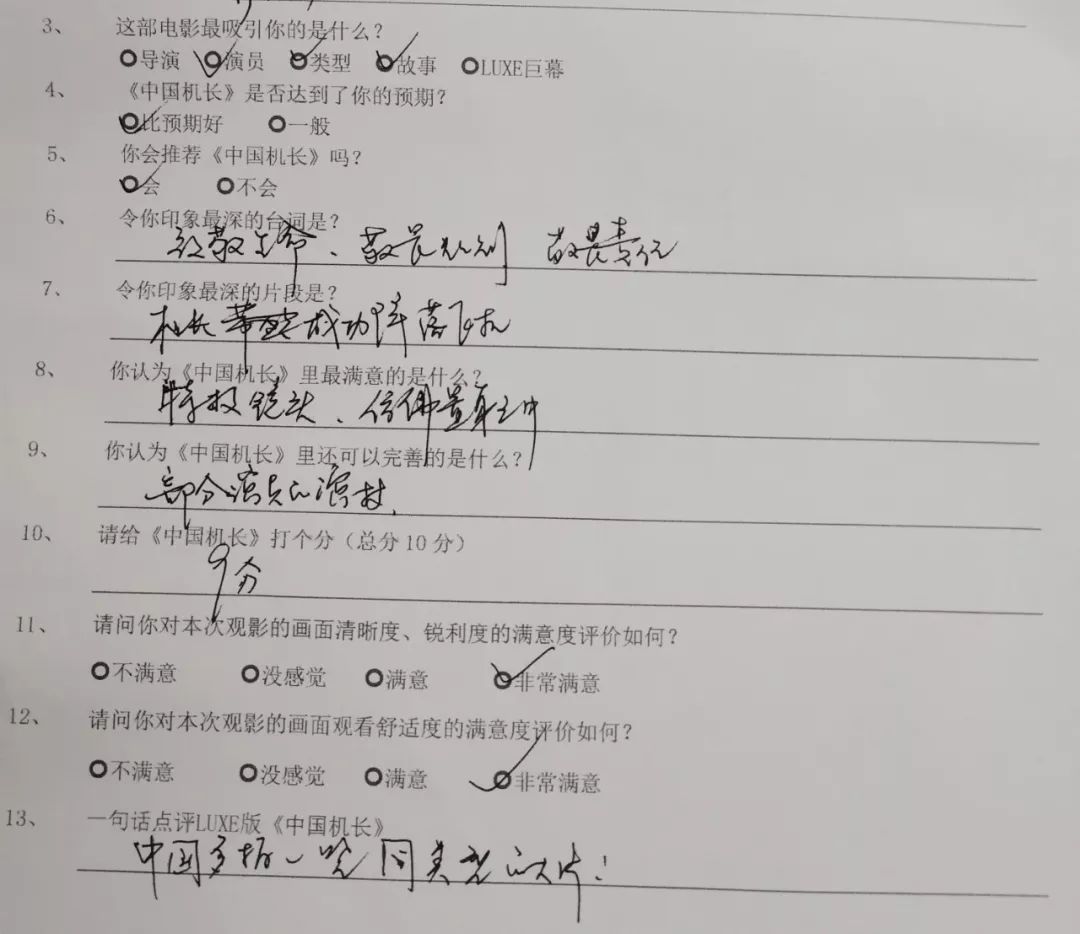 3、 这部电影最吸引你的是什么？
导演 演员 类型 故事 LUXE巨幕
4、 《中国机长》是否达到了你的预期？
比预期好 一般
5、 你会推荐《中国机长》吗？
会 不会
6、 令你印象最深的台词是？
敬畏生命、敬畏规则 敬畏责任
7、 令你印象最深的片段是？
机长 成功降落飞机
8、 你认为《中国机长》里最满意的是什么？
特技镜头、仿佛置身之中
9、 你认为《中国机长》里还可以完善的是什么？
部分演员的演技.
10、 请给《中国机长》打个分（总分10分）
9分
11、 请问你对本次观影的画面清晰度、锐利度的满意度评价如何？
不满意 没感觉 满意 非常满意
12、 请问你对本次观影的画面观看舒适度的满意度评价如何？
不满意 没感觉 满意 非常满意
13、 一句话点评LUXE版《中国机长》
中国多拍一些同类型的大片！